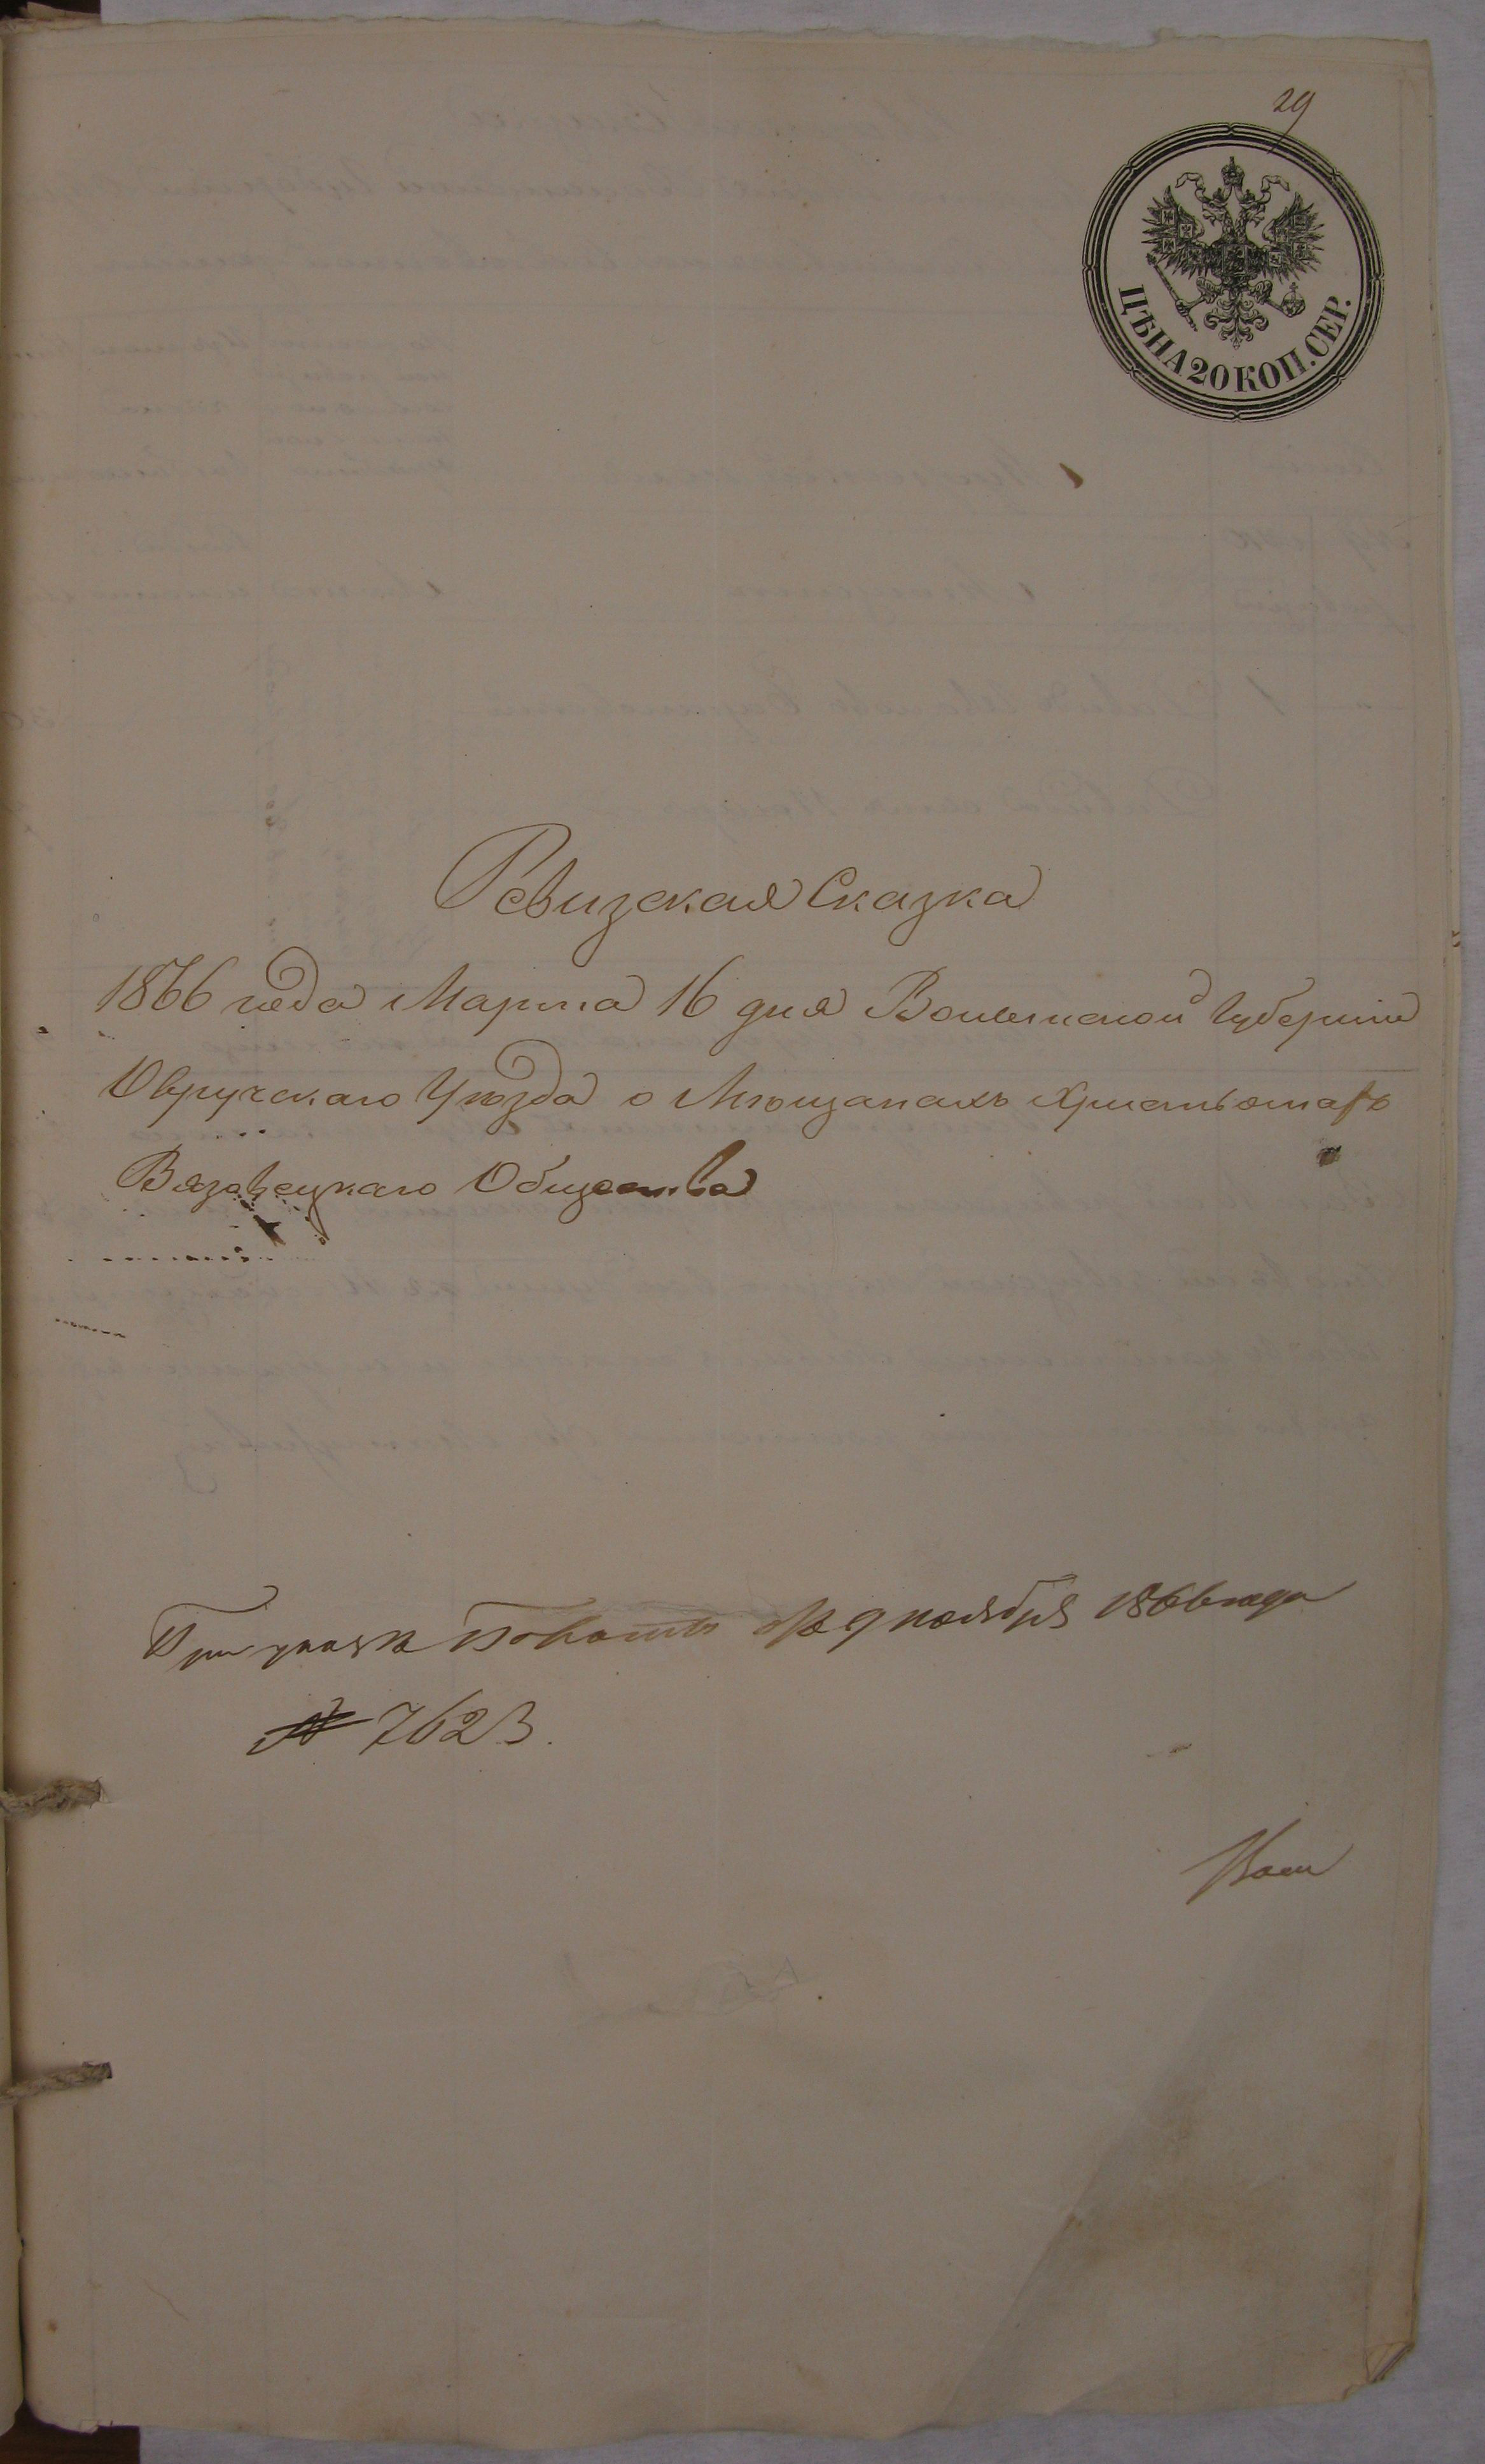 29
ЦѢНА 20 КОП. СЕР.
Ревизская Сказка
1866 года Марта 16 дня Волынской Губерніи
Овручскаго Уѣзда о Мѣщанахъ Христьянахъ
Вязовецкаго Общества
При указѣ Палаты отъ 9 ноября 1866 года
№ 7623.